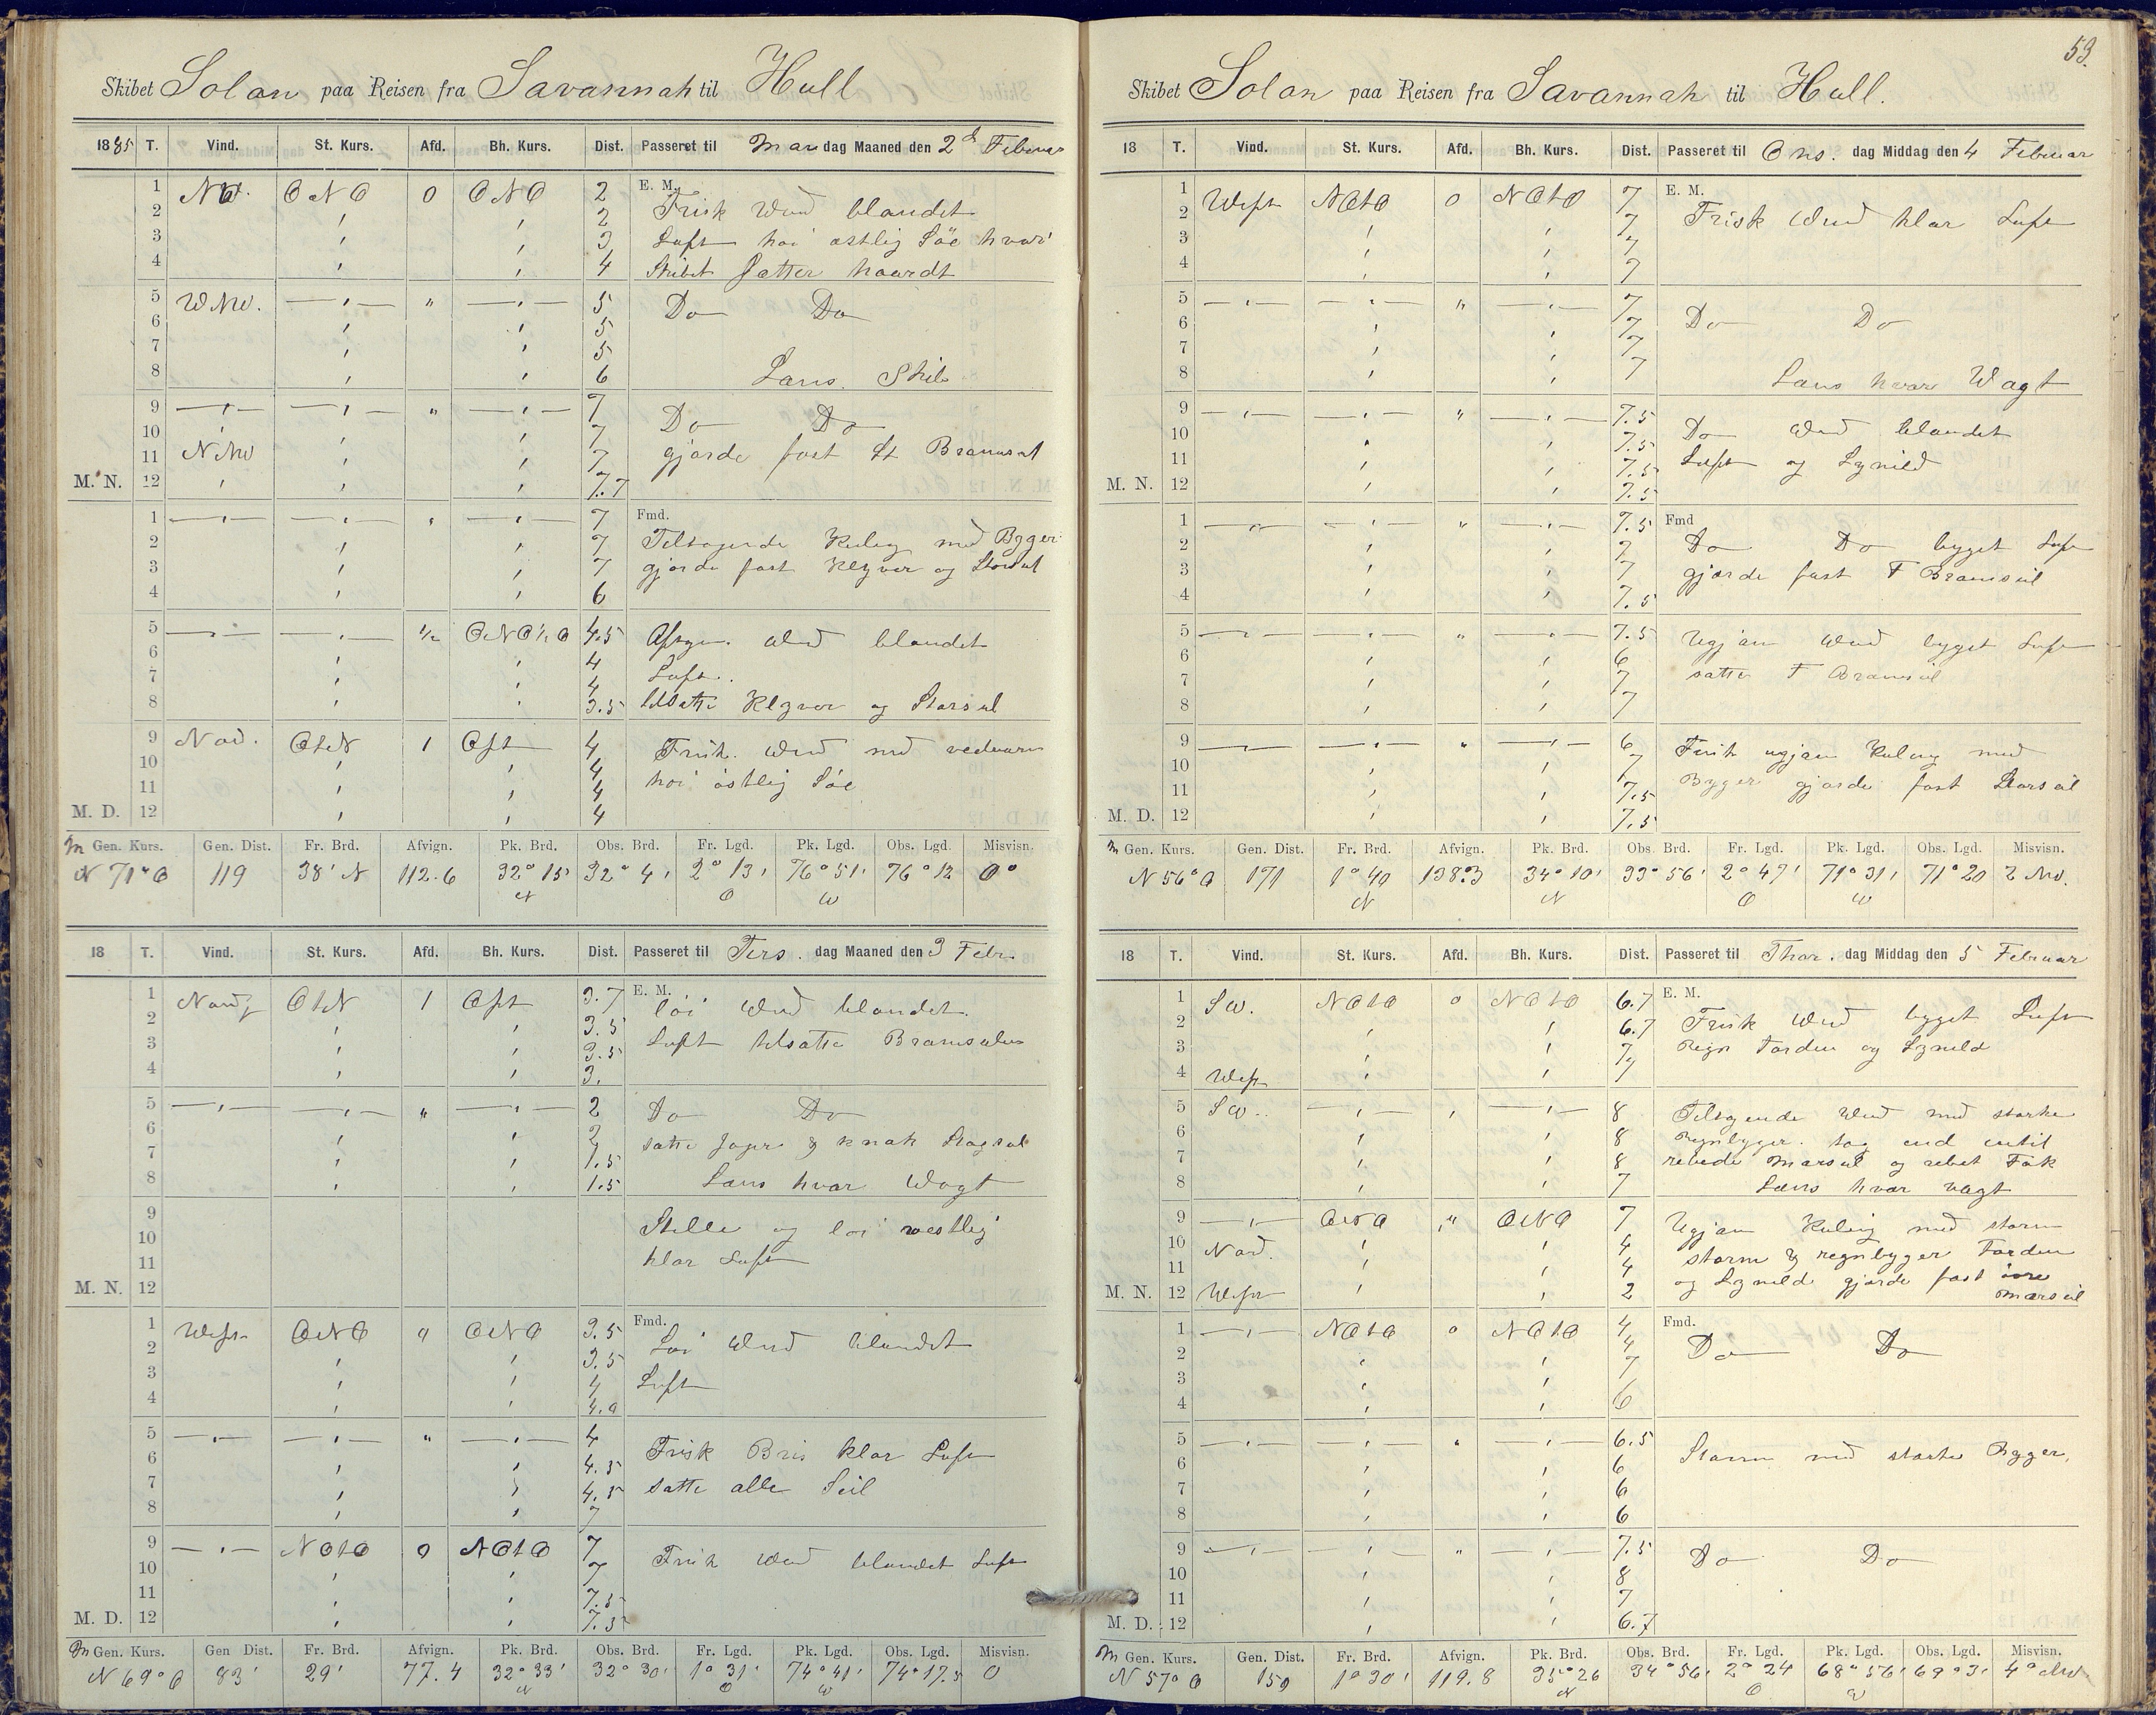 Skibet Solan paa Reisen fra Savannah til Hull
1885 T. Vind. St. Kurs. Afd. Bh. Kurs. Dist. Passeret til Man dag Maaned den 2d Februar
1 NW. ONO 0 ONO 2 E. M. Frisk Vind blandet
2 2
3 3 Luft høi østlig Søe hvori
4 4 Skibet sætter haardt
5 WNW. " 5 Do Do
6 5
7 5
8 6 Læns Skib
9 " 7 Do Do
10 7 gjorde fast St Bramseil
11 NNW 7
M. N. 12 7.7
1 " 7 Fmd.
2 7 Tiltagende Kuling med Byger
3 7 gjorde fast Klyver og Storseil
4 6
5 1/2 ONO 1/2 O 4.5 Vind blandet
6 4
7 4 Luft.
8 3.5 tilsatte Klyver og Storseil
9 Nord. OtN 1 Ost 4 Frisk Vind med vedvarende
10 4 høi østlig Søe
11 4
M. D. 12 4
M Gen. Kurs. Gen. Dist. Fr. Brd. Afvign. Pk. Brd. Obs. Brd. Fr. Lgd. Pk. Lgd. Obs. Lgd. Misvisn.
N 71° O 119 38' N 112.6 32° 15' N 32° 4' 2° 13' O 76° 51' W 76° 12 0°
18 T. Vind. St. Kurs. Afd. Bh. Kurs. Dist. Passeret til Tirs. dag Maaned den 3 Febr.
1 Nordl OtN 1 Ost 3.7 E. M. løi Vind blandet
2 3.5
3 3.5 Luft tilsatte Bramseilene
4 3.
5 " 2 Do Do
6 2 satte Jager &
7 1.5
8 1.5 Læns hver Vagt
9 Stille og løi vestlig
10
11 klar Luft
M. N. 12
1 West ONO " ONO 3.5 Fmd. Løi Vind blandet
2 3.5
3 4 Luft
4 4.0
5 " 4 Frisk Bris klar Luft
6 4.5
7 4.5 satte alle Seil
8 7
9 NOtO 0 NOtO 7 Frisk Vind blandet Luft
10 7
11 7.5
M. D. 12 7.5
M Gen. Kurs. Gen Dist. Fr. Brd. Afvign. Pk. Brd. Obs. Brd. Fr. Lgd. Pk. Lgd. Obs. Lgd. Misvisn.
N 69° O 83' 29' 77.4 32° 33' N 32° 30' 1° 31' O 74° 41' W 74° 17.5 0
53.
Skibet Solan paa Reisen fra Savannah til Hull.
18 T. Vind. St. Kurs. Afd. Bh. Kurs. Dist. Passeret til Ons. dag Middag den 4 Februar
1 West NOtO 0 NOtO 7 E. M.
2 7 Frisk Vind klar Luft
3 7
4 7
5 " 7 Do Do
6 7
7 7
8 7 Læns hver Vagt
9 " 7.5 Do Vind blandet
10 7.5
11 7.5 Luft og Lynild
M. N. 12 7.5
1 " 7.5 Fmd
2 7 Do Do byget Luft
3 7 gjorde fast F Bramseil
4 7.5
5 " 7.5 Ugjævn Vind byget Luft
6 6
7 7 satte F Bramseil
8 7
9 " 6 Frisk ugjævn Kuling med
10 7
11 7.5 Byger gjorde fast Storseil
M. D. 12 7.5
M Gen. Kurs. Gen. Dist. Fr. Brd. Afvign. Pk. Brd. Obs. Brd. Fr. Lgd. Pk. Lgd. Obs. Lgd. Misvisn.
N 56° O 171 1° 40 N 138.3 34° 10' N 33° 56' 2° 47' O 71° 31' W 71° 20 2 NW.
18 T. Vind. St. Kurs. Afd. Bh. Kurs. Dist. Passeret til Thor. dag Middag den 5 Februar
1 SW. NOtO 0 NOtO 6.7 E. M.
2 6.7 Frisk Vind byget Luft
3 7 Regn Torden og Lynild
4 West 7
5 SW. 8 Tiltagende Vind med stærke
6 8 Regnbyger. tog ind until
7 8 rebede Mærseil og rebet Fok
8 7 Læns hver vagt
9 ONO " ONO 7 Ugjævn Kuling med storm
10 Nord. 4 storm & regnbyger Torden
11 4
M. N. 12 West 2 og Lynild gjorde fast øvre Mærseil
1 NOtO 0 NOtO 4 Fmd.
2 4 Do Do
3 7
4 6
5 " 6.5 Storm med stærke Byger.
6 6
7 6
8 6
9 " 7.5 Do Do
10 8
11 7
M. D. 12 6.7
M Gen. Kurs. Gen. Dist. Fr. Brd. Afvign. Pk. Brd. Obs. Brd. Fr. Lgd. Pk. Lgd. Obs. Lgd. Misvisn.
N 57° O 150 1° 30' 119.8 35° 26 N 34° 56' 2° 24 O 68° 56' W 69° 3' 4° NW